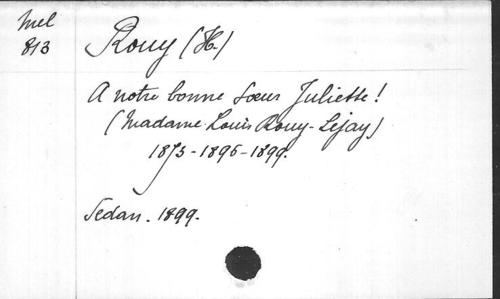 Mel
813
Rouy (H.)
A notre bonne soeur Juliette !
(Madame Louis Rouy-Lejay)
1875-1896-1899.
Sedan. 1899.